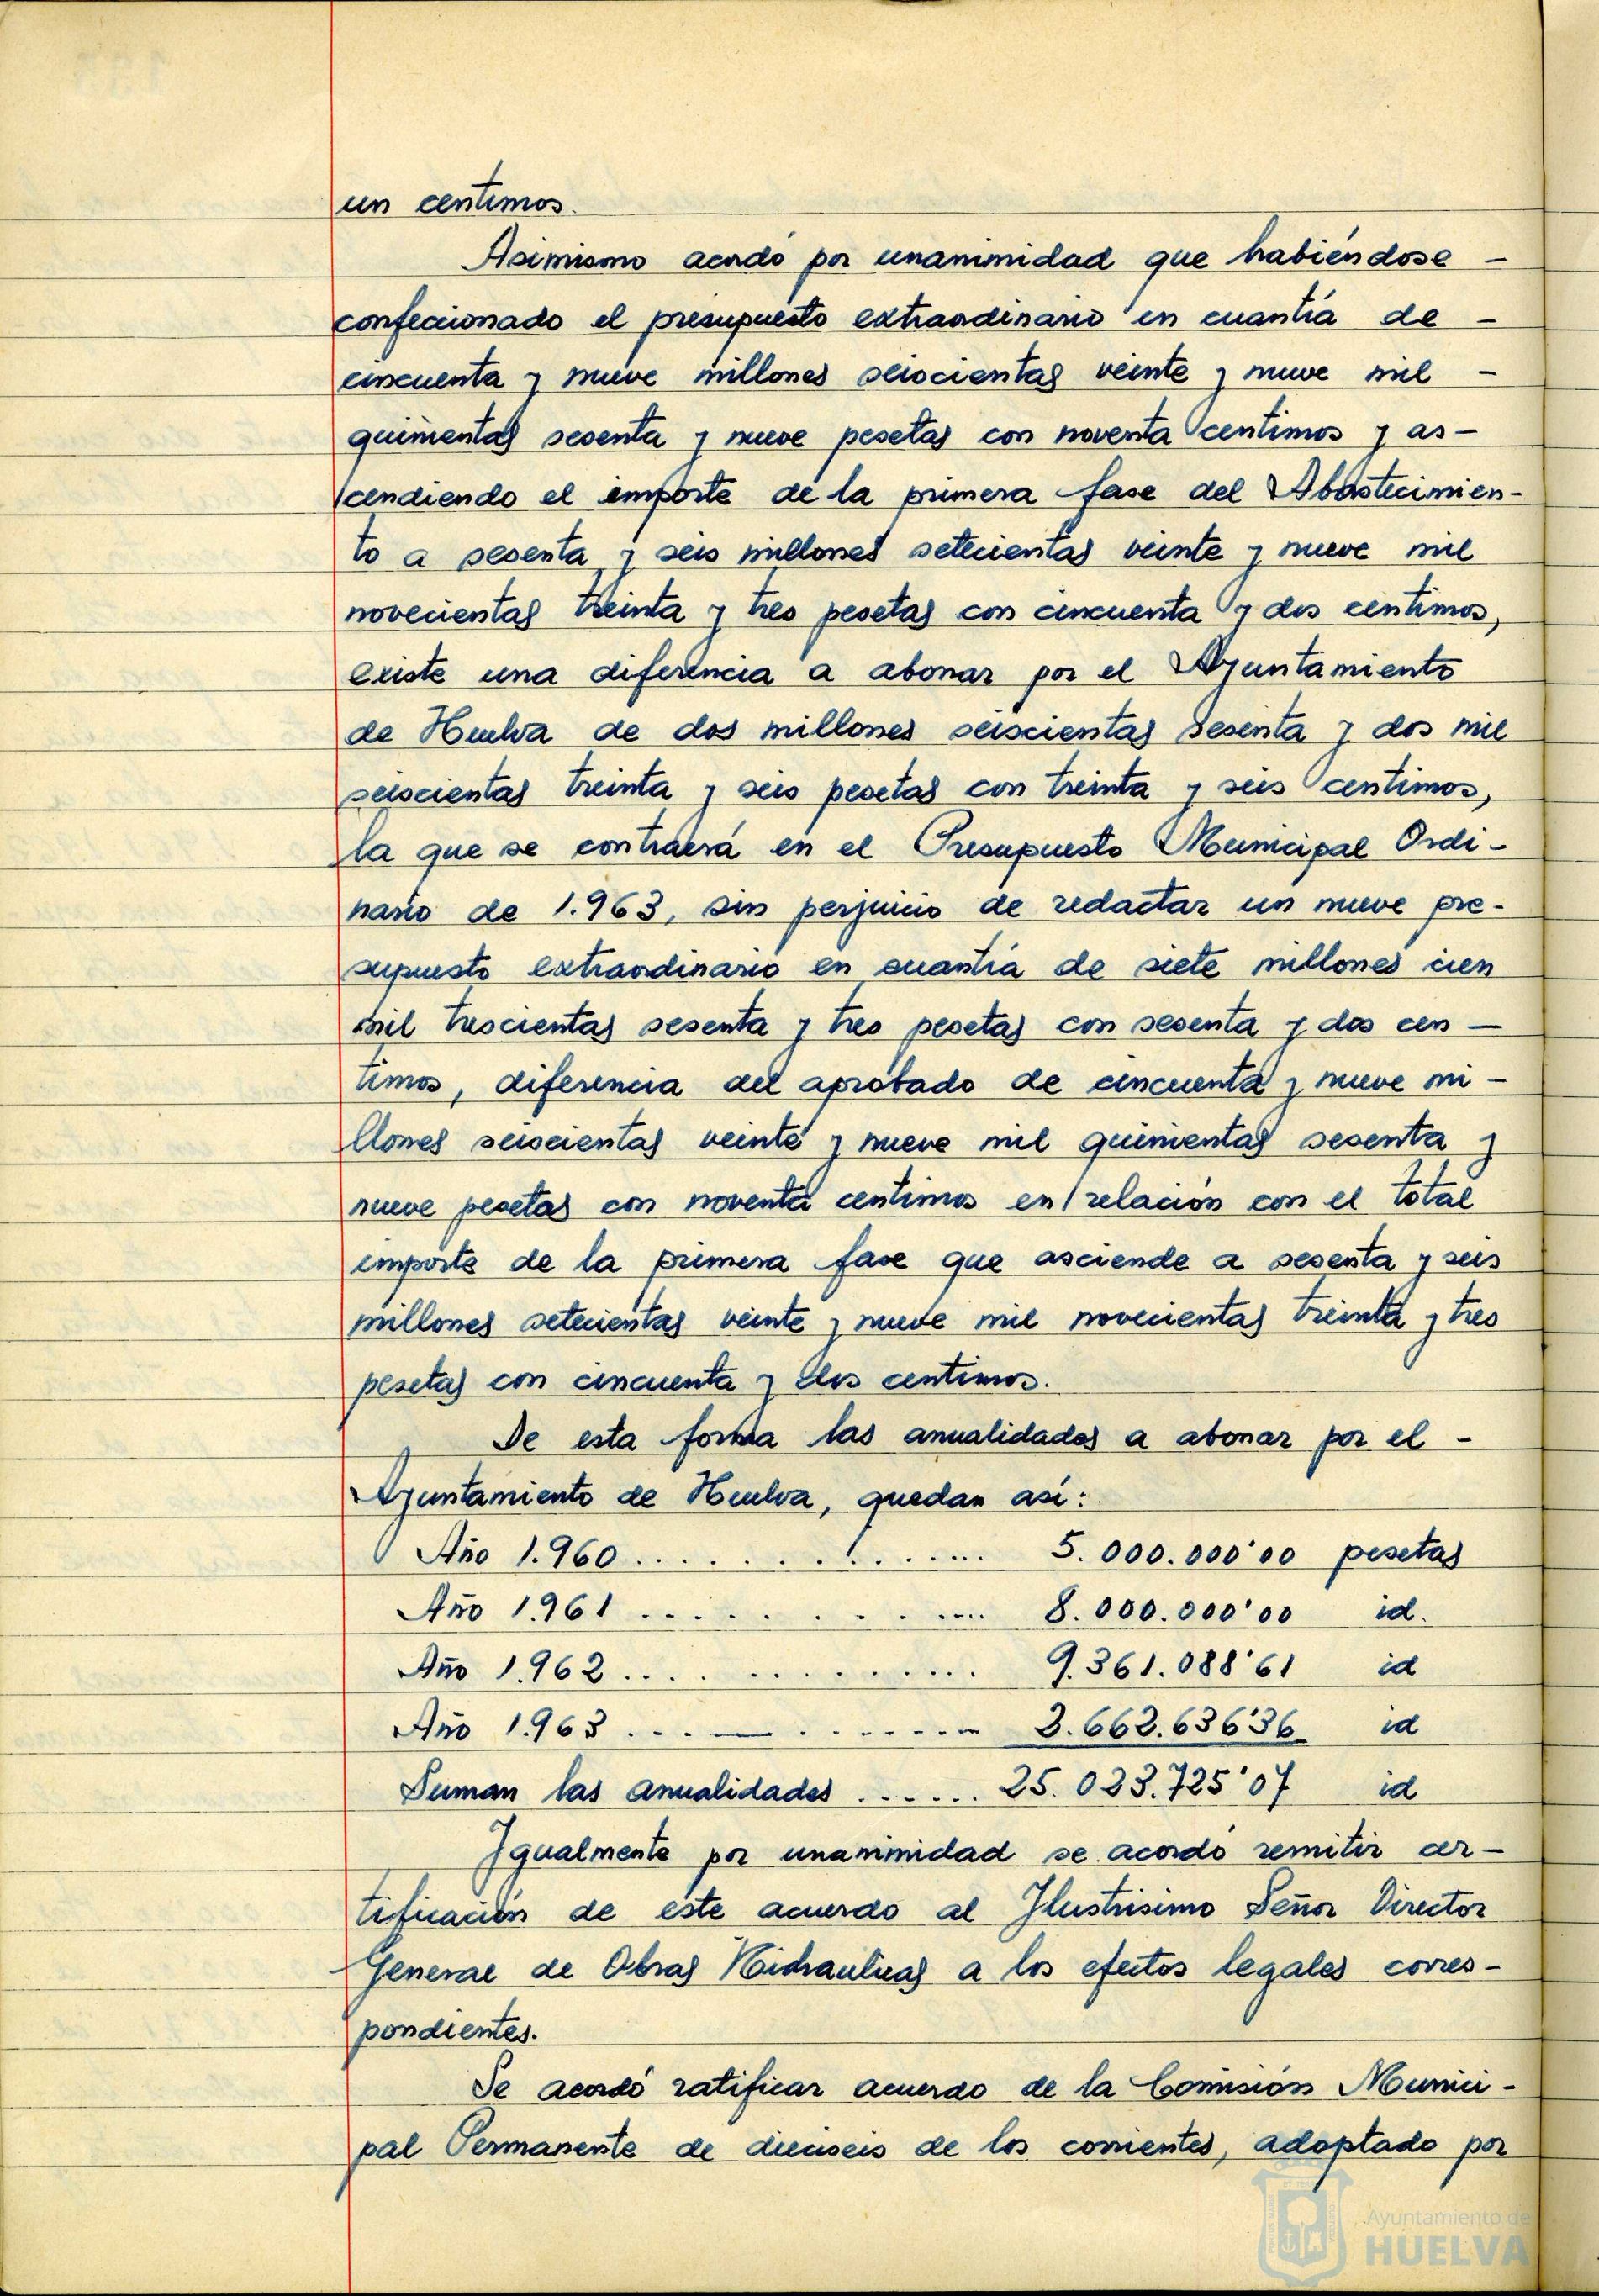 un centimos.
Asimismo acordó por unanimidad que habiéndose -
confeccionado el presupuesto extraordinario en cuantía de -
cincuenta y nueve millones seiscientas veinte y nueve mil -
quinientas sesenta y nueve pesetas con noventa centimos y as-
cendiendo el importe de la primera fase del Abastecimien-
to a sesenta y seis millones setecientas veinte y nueve mil
novecientas treinta y tres pesetas con cincuenta y dos centimos,
existe una diferencia a abonar por el Ayuntamiento
de Huelva de dos millones seiscientas sesenta y dos mil
seiscientas treinta y seis pesetas con treinta y seis centimos,
la que se contraerá en el Presupuesto Municipal Ordi-
nario de 1.963, sin perjuicio de redactar un nueve pre-
supuesto extraordinario en cuantía de siete millones cien
mil trescientas sesenta y tres pesetas con sesenta y dos cen-
timos, diferencia del aprobado de cincuenta y nueve mi-
llones seiscientas veinte y nueve mil quinientas sesenta y
nueve pesetas con noventa centimos en relación con el total
importe de la primera fase que asciende a sesenta y seis
millones setecientas veinte y nueve mil novecientas treinta y tres
pesetas con cincuenta y dos centimos.
De esta forma las anualidades a abonar por el -
Ayuntamiento de Huelva, quedan así:
Año 1.960 .................. 5.000.000'00 pesetas
Año 1.961 .................. 8.000.000'00 id.
Año 1.962 .................. 9.361.088'61 id
Año 1.963 .................. 2.662.636'36 id
Suman las anualidades ....... 25.023.725'07 id
Igualmente por unanimidad se acordó remitir cer-
tificación de este acuerdo al Ilustrisimo Señor Director
General de Obras Hidraulicas a los efectos legales corres-
pondientes.
Se acordó ratificar acuerdo de la Comisión Munici-
pal Permanente de dieciseis de los corrientes, adoptado por
Ayuntamiento de
HUELVA